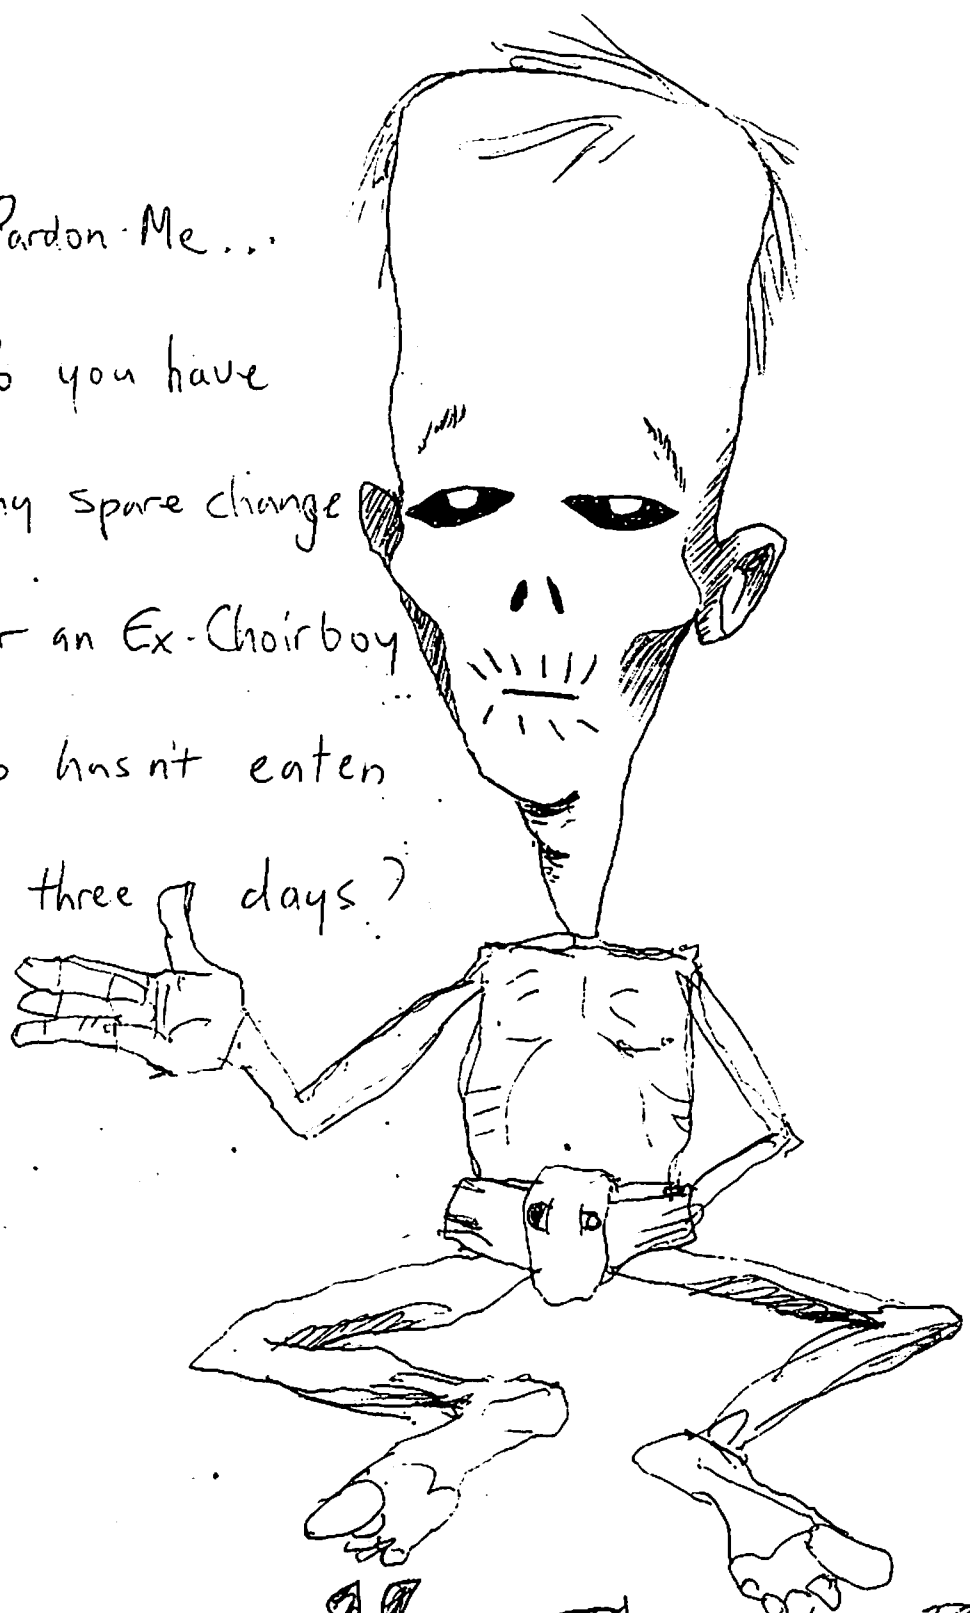 Pardon Me...
you have
spare change
an Ex-Choirboy
hasn't eaten
three days?